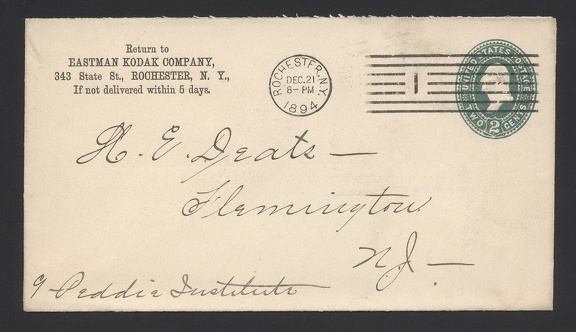 Return to
EASTMAN KODAK COMPANY,
343 State St., ROCHESTER, N. Y.,
If not delivered within 5 days.
ROCHESTER, N.Y.
DEC. 21
8-PM
1894
1
UNITED STATES POSTAGE
TWO 2 CENTS
H. E. Deats —
Flemington
NJ. —
Peddie Institute